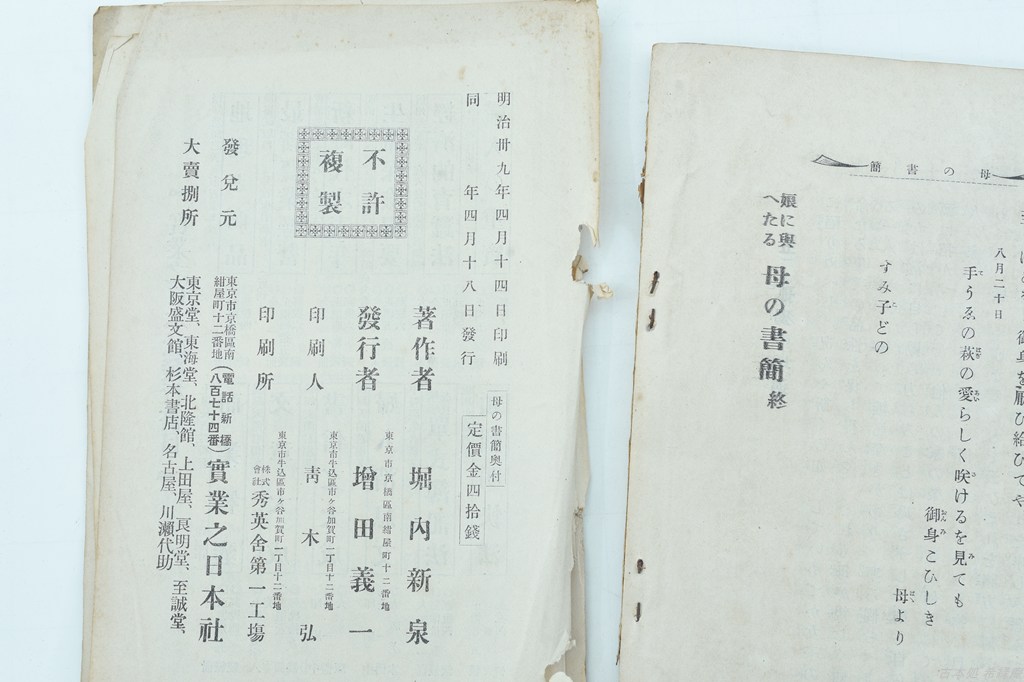 母の書簡
御身を
八月二十日
手うゑの萩の愛らしく咲けるを見ても
御身こひしき
母より
すみ子どの
娘に與へたる 母の書簡 終
明治卅九年四月十四日印刷
同 年四月十八日發行
母の書簡奥付
定價金四拾錢
不許複製
著作者 堀内新泉
東京市京橋區南紺屋町十二番地
發行者 增田義一
東京市牛込區市ケ谷加賀町一丁目十二番地
印刷人 靑木弘
東京市牛込區市ケ谷加賀町一丁目十二番地
印刷所 株式會社 秀英舍第一工塲
發兌元 東京市京橋區南紺屋町十二番地 (電話新橋八百七十四番) 實業之日本社
大賣捌所 東京堂、東海堂、北隆館、上田屋、良明堂、至誠堂、
大阪盛文館、杉本書店、名古屋、川瀬代助